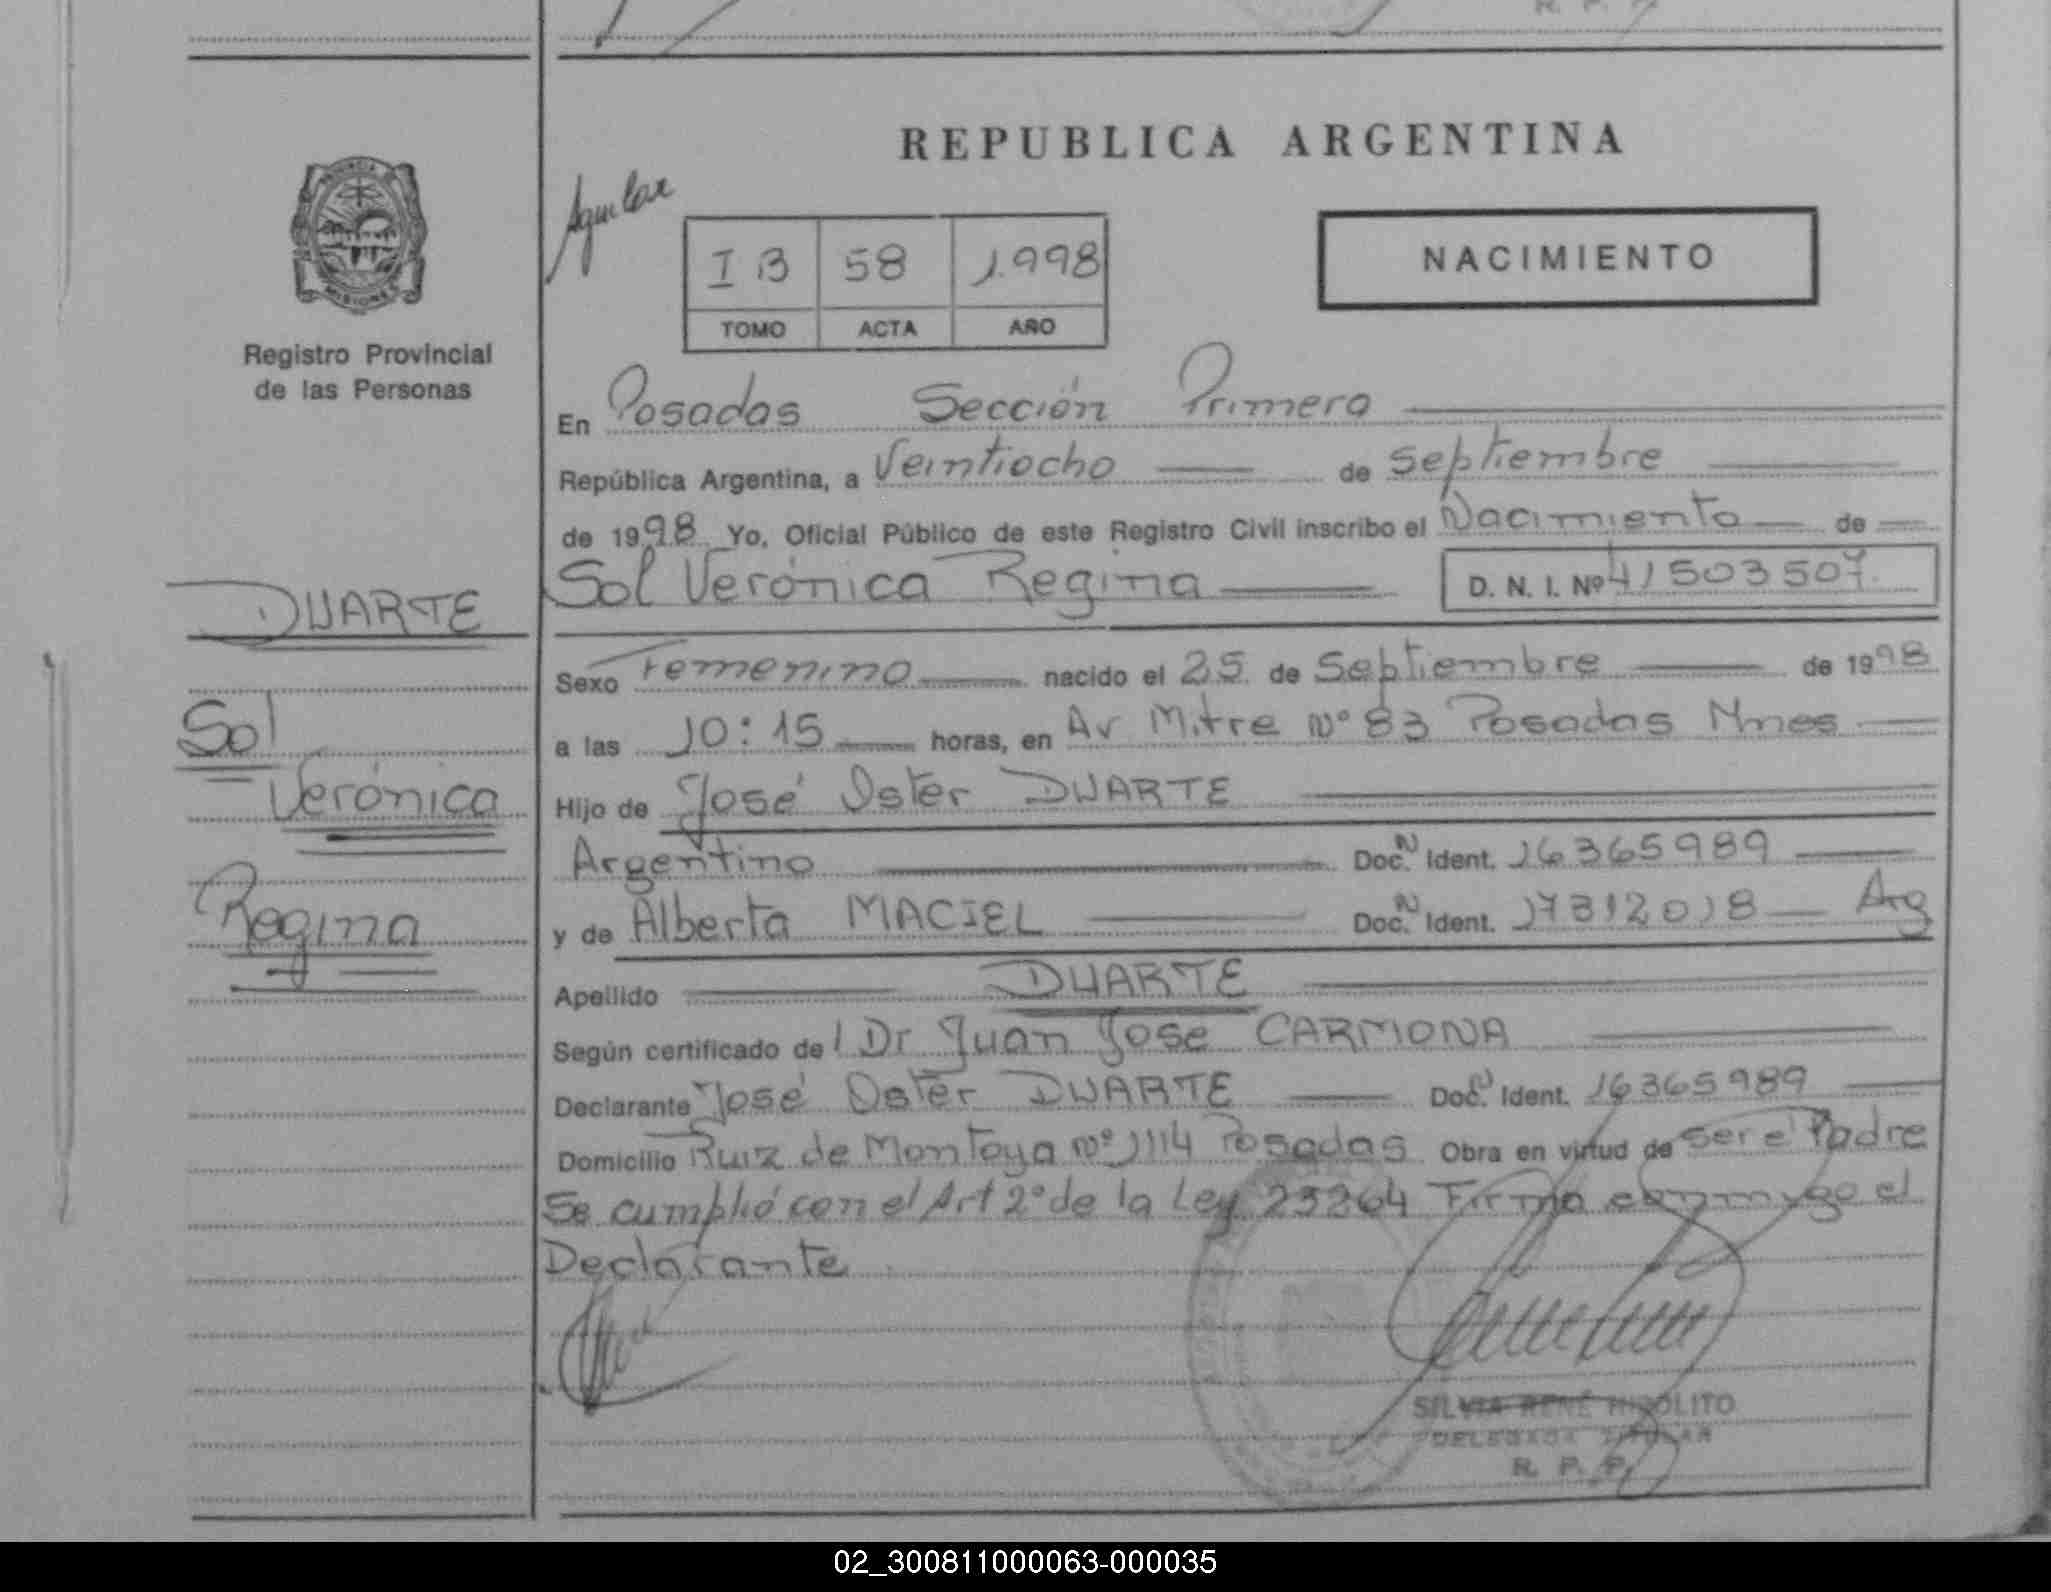 R. P. P.
REPUBLICA ARGENTINA
PROVINCIA
MISIONES
Registro Provincial
de las Personas
Aguilar
I B 58 1.998
TOMO ACTA AÑO
NACIMIENTO
En Posadas Sección Primera
República Argentina, a Veintiocho de Septiembre
de 1998 Yo, Oficial Público de este Registro Civil inscribo el Nacimiento de
Sol Verónica Regina D. N. I. Nº 41503507.
DUARTE
Sol
Verónica
Regina
Sexo Femenino nacido el 25 de Septiembre de 1998
a las 10:15 horas, en Av Mitre Nº 83 Posadas Mnes
Hijo de José Oster DUARTE
Argentino Doc. N Ident. 16365989
y de Alberta MACIEL Doc. N Ident. 17812018 Arg
Apellido DUARTE
Según certificado del Dr Juan José CARMONA
Declarante José Oster DUARTE Doc. N Ident. 16365989
Domicilio Ruiz de Montoya Nº 1114 Posadas Obra en virtud de ser el Padre
Se cumplió con el Art 2º de la Ley 23264 Firma conmigo el
Declarante
SILVIA RENÉ HIPÓLITO
DELEGADA TITULAR
R. P. P.
02_300811000063-000035